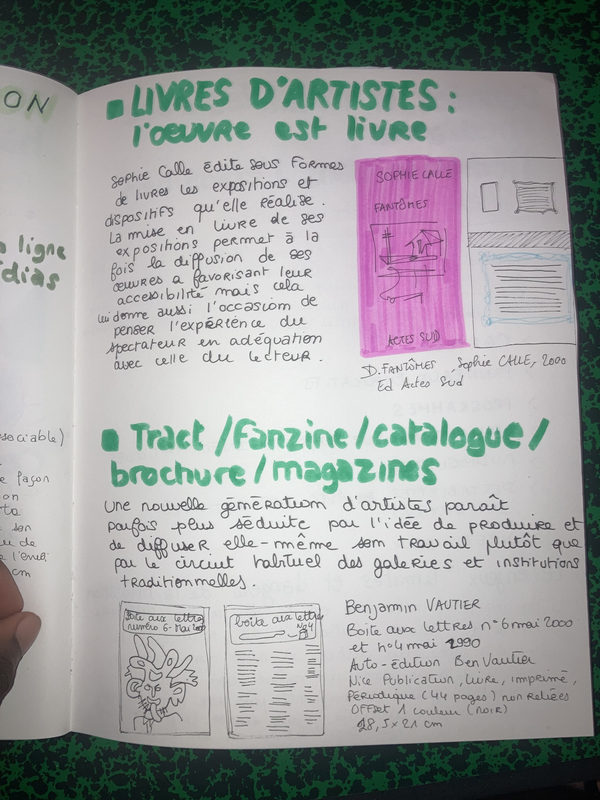 ON
ligne
dias
sociable)
façon
on
son
de
cm
LIVRES D'ARTISTES :
l'œuvre est livre
Sophie Calle édite sous formes
de livres les expositions et
dispositifs qu'elle réalise.
La mise en livre de ses
expositions permet à la
fois la diffusion de ses
œuvres a favorisant leur
accessibilité mais cela
lui donne aussi l'occasion de
penser l'expérience du
spectateur en adéquation
avec celle du lecteur.
SOPHIE CALLE
FANTÔMES
ACTES SUD
D. FANTÔMES, Sophie CALLE, 2000
Ed Actes Sud
Tract /Fanzine/catalogue/
brochure/magazines
Une nouvelle génération d'artistes paraît
parfois plus séduite par l'idée de produire et
de diffuser elle-même son travail plutôt que
par le circuit habituel des galeries et institutions
traditionnelles.
Boîte aux lettres
numéro 6- Mai 2000
boîte aux lettres
No4
Benjanmin VAUTIER
Boite aux lettres n°6 mai 2000
et n°4 mai 1990
Auto-édition Ben Vautier
Nice Publication, Livre, imprimé,
Périodique (44 pages) non reliées
OFFset 1 couleur (noir)
28,5×21 cm